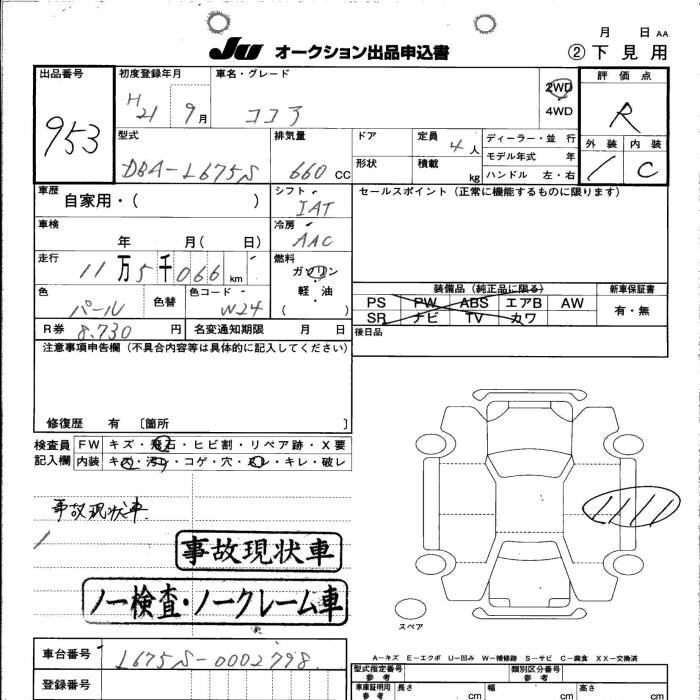 月 日 AA
JU オークション出品申込書 ②下見用
出品番号 953
初度登録年月 H21 9月
車名・グレード ココア
2WD
4WD
評価点 R
外装 内装
/ C
型式 DBA-L675S
排気量 660 CC
ドア
形状
定員 4人
積載 kg
ディーラー・並行
モデル年式 年
ハンドル 左・右
車歴 自家用・( )
シフト IAT
セールスポイント(正常に機能するものに限ります)
車検 年 月( 日)
冷房 AAC
走行 11万5千066km
燃料 ガソリン
軽・油
( )
色 パール 色替
色コード W24
装備品(純正品に限る)
PS PW ABS エアB AW
SR ナビ TV カワ
新車保証書
有・無
R券 8,730円
名変通知期限 月 日
後日品
注意事項申告欄(不具合内容等は具体的に記入してください)
修復歴 有 〔箇所 〕
検査員記入欄
FW キズ・飛石・ヒビ割・リペア跡・X要
内装 キズ・汚レ・コゲ・穴・ミレ・キレ・破レ
事故現状車
事故現状車
ノー検査・ノークレーム車
スペア
車台番号 L675S-0002798
登録番号
A-キズ E-エクボ U-凹み W-補修跡 S-サビ C-腐食 XX-交換済
型式指定番号 参考
類別区分番号 参考
車庫証明用 参考 長さ cm 幅 cm 高さ cm